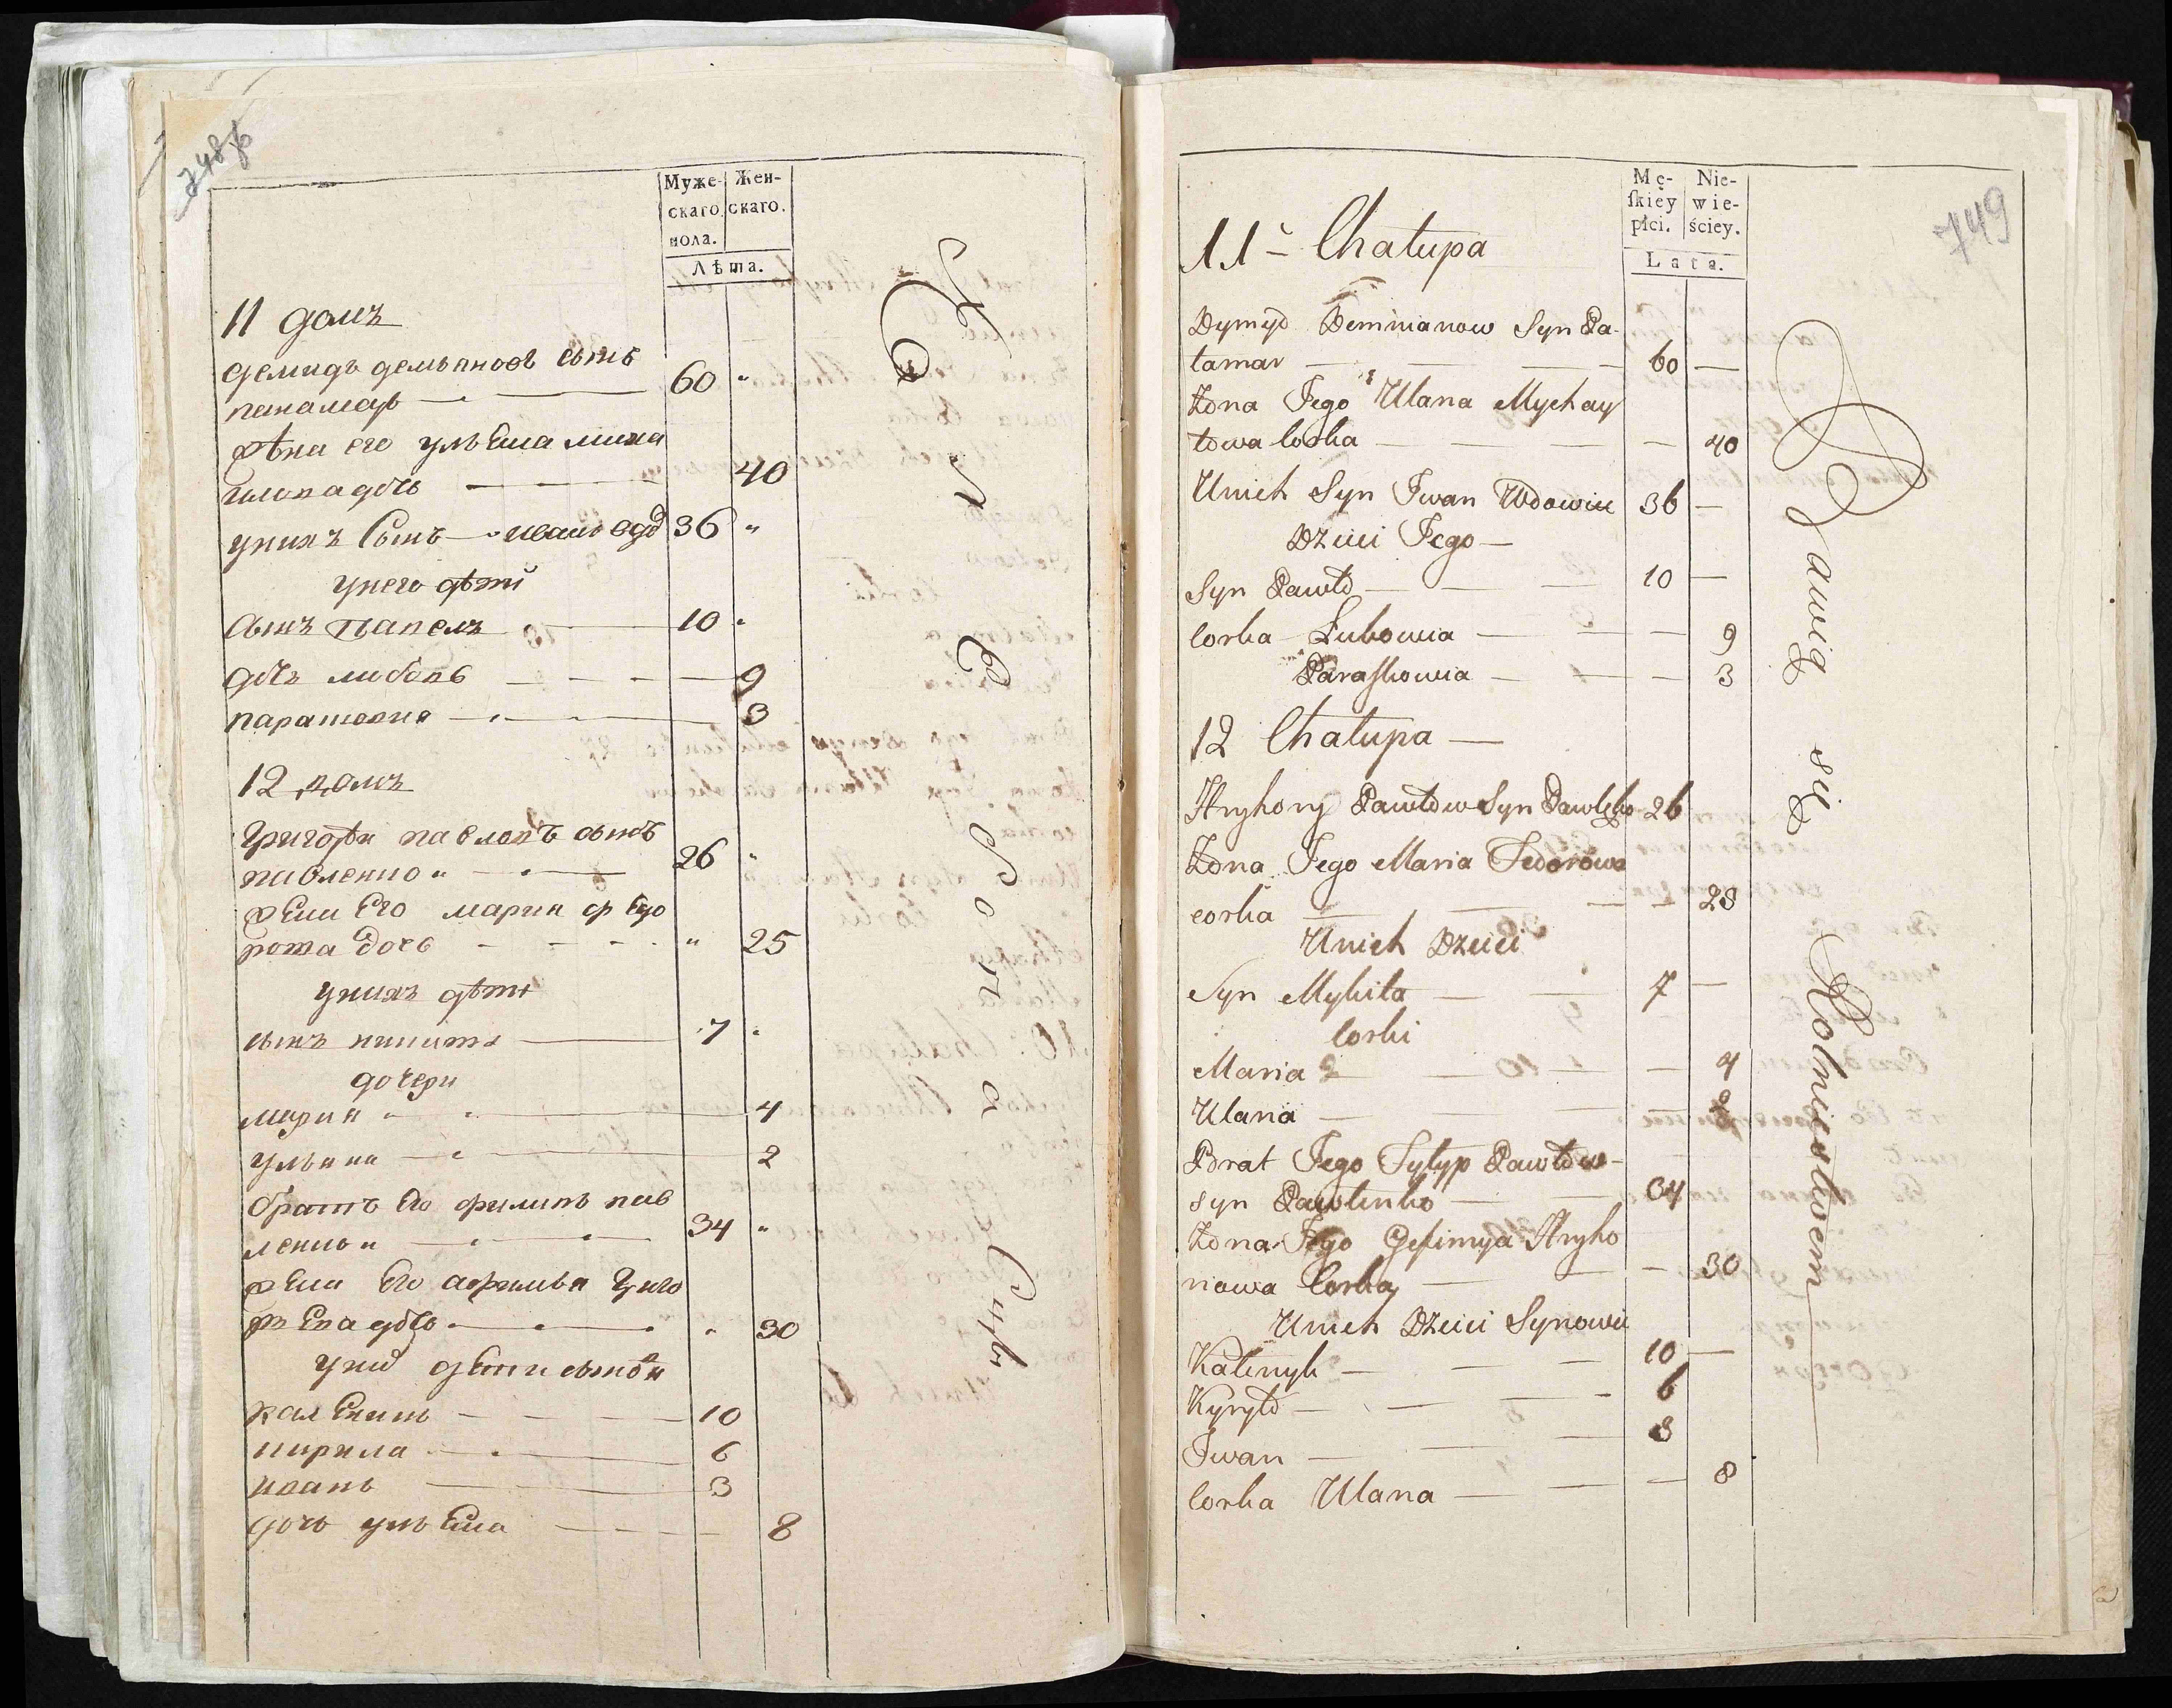 748б
Муже-
скаго
пола.
Жен-
скаго.
Лѣта.
11 домъ
демидъ демьяновъ сынъ
панамарь 60 "
жѣна его ульѣна миха
илова дочь 40
унихъ Сынъ иванъ вдо 36 "
унего дѣти
сынъ павелъ 10 "
дочь любовь 9
парасковия 3
12 домъ
Григорѣй павловъ сынъ
павленко 26 "
жѣна Его мария фѣдо
рова дочь " 25
унихъ дѣти
сынъ никита 7 "
дочери
мария 4
ульяна 2
братъ Его филипъ пав
ленко 34 "
жѣна Его афимья Григо
рьѣва дочь " 30
уних дѣти сыновя
калѣникъ 10
кирила 6
иванъ 3
дочь ульѣна 8
749
Mę-
skiéy
płci.
Nie-
wie-
ściey.
Lata.
11 Chałupa
Dymyd Demnianow Syn Pa-
łamar 60 —
Żona Jego Ulana Mychay
łowa Corka — 40
Unich Syn Jwan Wdowiec 36 —
Dzieci Jego —
Syn Pawło 10 —
Corka Lubowia — 9
Paraskowia — 3
12 Chałupa —
Hryhory Pawłow Syn Pawlęko 26
Żona Jego Maria Fedorowa
corka — 28
Unich Dzieci
Syn Mykita 7 —
Corki
Maria — 4
Ulana — 2
Brat Jego Fyłyp Pawłow-
syn Pawlenko 34
Żona Jego Jefimya Hryho
riowa Corka — 30
Unich Dzieci Synowie
Kalenyk — 10 —
Kyryło — 6
Jwan — 3
Corka Ulana — 8
Bawią się Rolnictwem